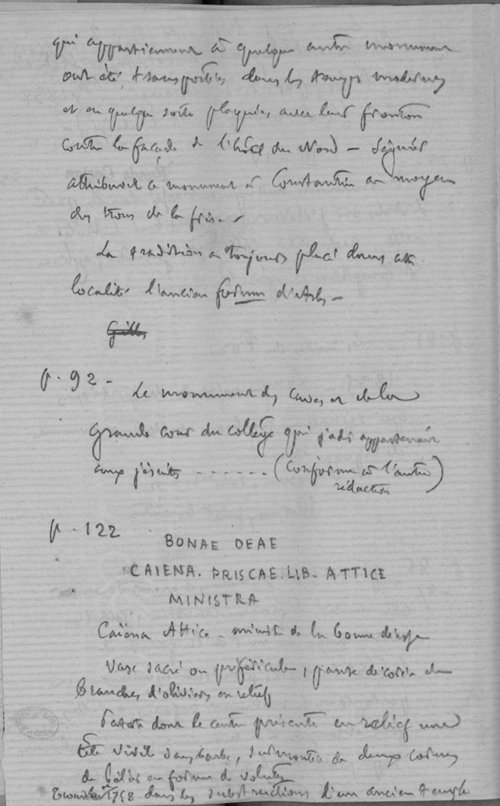 qui appartiennent à quelque autre monument
ont été transportés dans les temps modernes
et en quelque sorte plaqués avec leur fronton
contre la façade de l'hôtel du Nord — Séguier
attribuait ce monument à Constantin au moyen
des trous de la frise. -
La tradition a toujours placé dans cette
localité l'ancien forum d'Arles —
p. 92 - Le monument des caves et de la
grande cour du collège qui jadis appartenait
aux jésuites - - - - - - (Conforme à l'autre
rédaction)
p. 122
BONAE DEAE
CAIENA. PRISCAE. LIB. ATTICE
MINISTRA
Caiena Attice - ministre de la bonne déesse
Vase sacré ou préféricule, panse décorée de
branches d'oliviers en relief
Patère dont le centre présente en relief une
tête virile sans barbe, surmontée de deux cornes
de bélier en forme de volutes
1758 dans les substructions d'un ancien temple